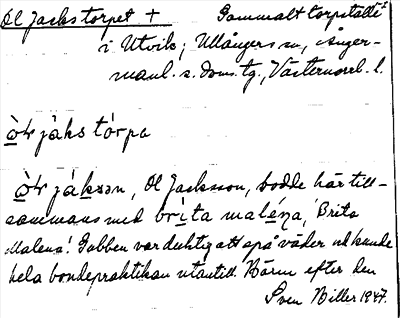 Ol Jackstorpet + Gammalt torpställe
i Utvik; Ullångers sn, Ånger-
manl. s. doms.tg., Västernorrl. l.
jáks tórpa
jáksən, Ol Jacksson, bodde här till-
sammans med bríta maléna, 'Brita
Malena'. Gubben var duktig att spå väder och kunde
hela bondepraktikan utantill. Barn efter den
Sven Biller 1947.